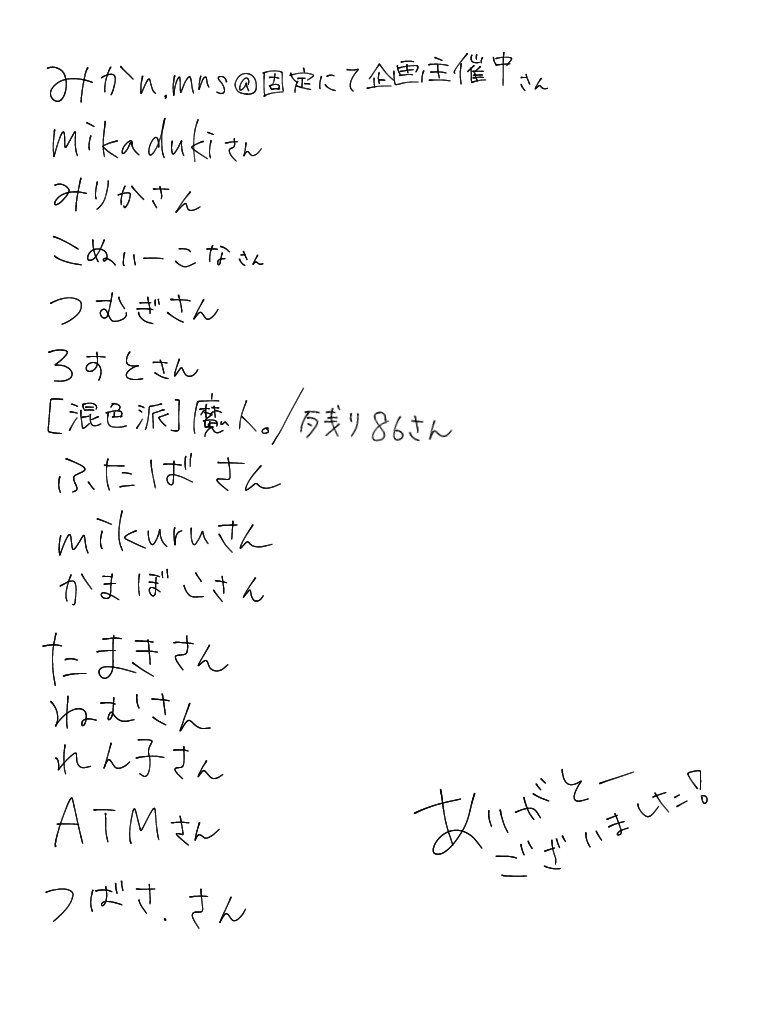 みかn.mns@固定にて企画主催中さん
mikadukiさん
みりかさん
こぬぃーこなさん
つむぎさん
ろすとさん
[混色派]魔人。/残り86さん
ふたばさん
mikuruさん
かまぼこさん
たまきさん
ねむさん
れん子さん
ATMさん
つばさ.さん
ありがとー
ございました!